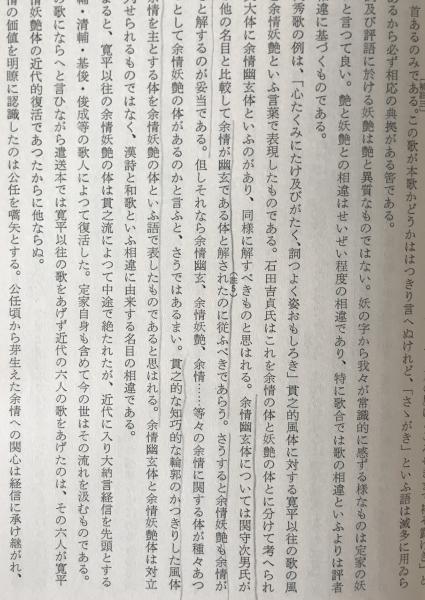 首あるのみである。この歌が本歌かどうかははつきり言へぬけれど、「さゝがき」といふ語は滅多に用ゐら
るから必ず相応の典拠がある筈である。
及び評語に於ける妖艶は艶と異質なものではない。妖の字から我々が常識的に感ずる様なものは定家の妖
と言つて良い。艶と妖艶との相違はせいぜい程度の相違であり、特に歌合では歌の相違といふよりは評者
違に基づくものである。
秀歌の例は、「心たくみにたけ及びがたく、詞つよく姿おもしろき」貫之的風体に対する寛平以往の歌の風
余情妖艶といふ言葉で表現したものである。石田吉貞氏はこれを余情の体と妖艶の体とに分けて考へられ
大体に余情幽玄体といふのがあり、同様に解すべきものと思はれる。余情幽玄体については関守次男氏が
他の名目と比較して余情が幽玄である体と解されたのに従ふべきであらう。さうすると余情妖艶も余情が
と解するのが妥当である。但しそれなら余情幽玄、余情妖艶、余情……等々の余情に関する体が種々あつ
として余情妖艶の体があるのかと言ふと、さうではあるまい。貫之的な知巧的な輪郭のかつきりした風体
余情を主とする体を余情妖艶の体といふ語で表したものであると思はれる。余情幽玄体と余情妖艶体は対立
せられるものではなく、漢詩と和歌といふ相違に由来する名目の相違である。
まると、寛平以往の余情妖艶の体は貫之流によつて中途で絶たれたが、近代に入り大納言経信を先頭とする
輔・清輔・基俊・俊成等の歌人によつて復活した。定家自身も含めて今の世はその流れを汲むものである。
の歌にならへと言ひながら遣送本では寛平以往の歌をあげず近代の六人の歌をあげたのは、その六人が寛平
情妖艶体の近代的復活であつたからに他ならぬ。
情の価値を明瞭に認識したのは公任を嚆矢とする。公任頃から芽生えた余情への関心は経信に承け継がれ、